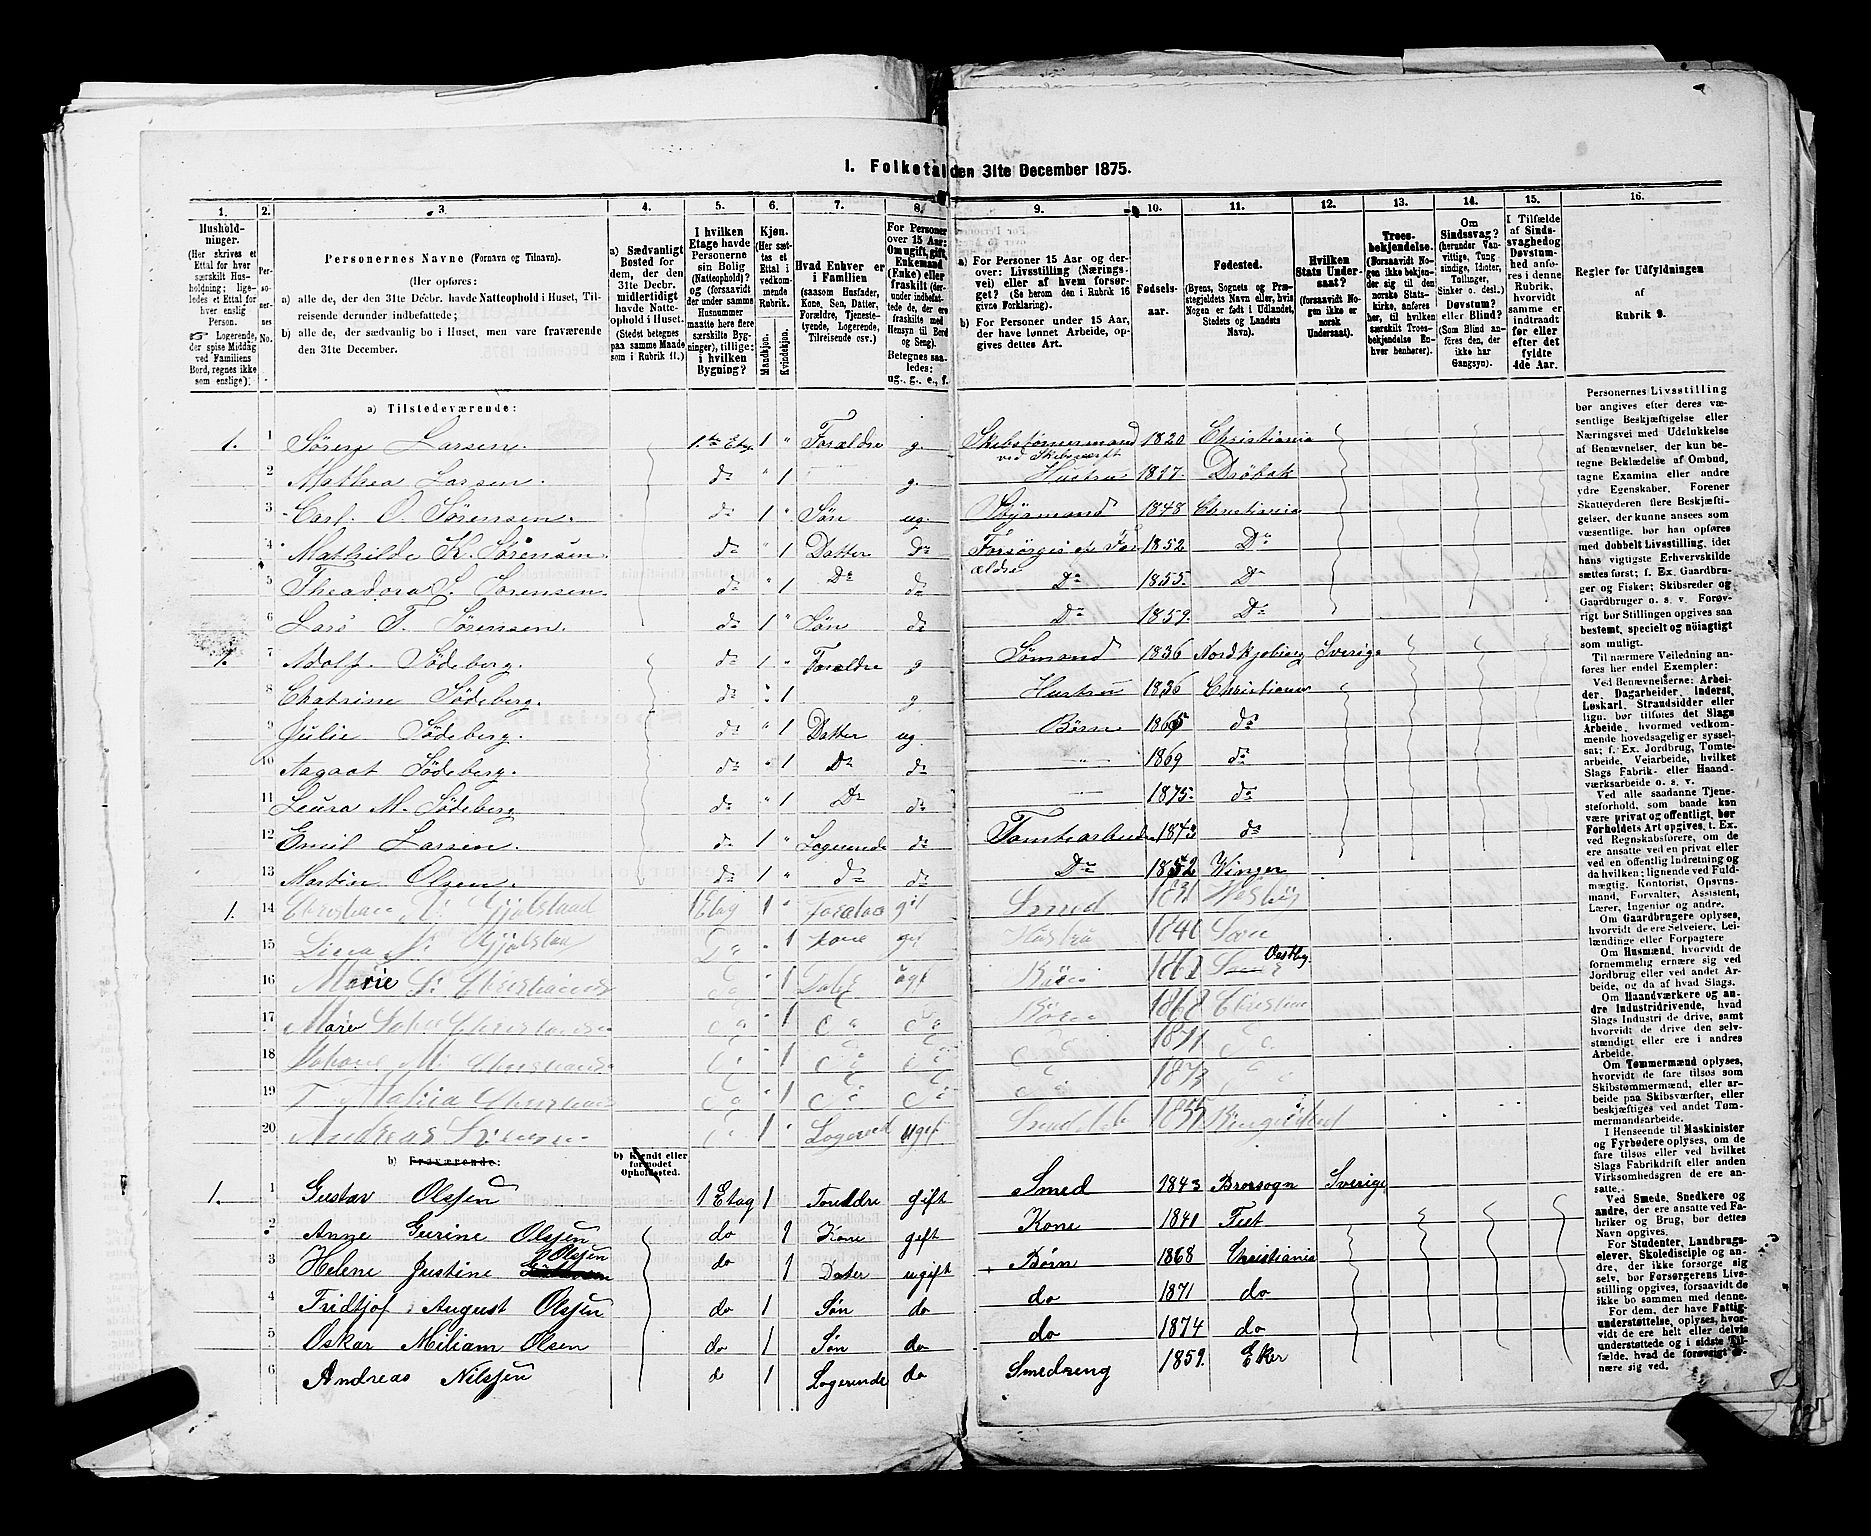 I. Folketal den 31te December 1875.
1. 2. 3. 4. 5. 6. 7. 8. 9. 10. 11. 12. 13. 14. 15. 16.
Husholdninger. (Her skrives et Ettal for hver særskilt Husholdning; ligeledes et Ettal for hver enslig Person. Logerende, der spise Middag ved Familiens Bord, regnes ikke som enslige).
Personernes No.
Personernes Navne (Fornavn og Tilnavn).
(Her opføres:
a) alle de, der den 31te Decbr. havde Natteophold i Huset, Tilreisende derunder indbefattede;
b) alle de, der sædvanlig bo i Huset, men vare fraværende den 31te December.
a) Sædvanligt Bosted for dem, der den 31te Decbr. midlertidigt havde Natteophold i Huset (Stedet betegnes paa samme Maade som i Rubrik 11.)
I hvilken Etage havde Personerne sin Bolig (Natteophold)? (forsaavidt der under samme Husnummer maatte høre flere særskilte Bygninger), tillige: i hvilken Bygning?
Kjøn. (Her sættes et Ettal i vedkommende Rubrik. Mandkjøn. Kvindekjøn.
Hvad Enhver er i Familien (saasom Husfader, Kone, Søn, Datter, Forældre, Tjenestetyende, Logerende, Tilreisende osv.)
For Personer over 15 Aar: Om ugift, gift, Enkemand (Enke) eller fraskilt (derunder indbefattede de, der ere fraskilte med Hensyn til Bord og Seng). Betegnes saaledes: ug., g., e., f.
a) For Personer 15 Aar og derover: Livsstilling (Næringsvei) eller af hvem forsørget? (Se herom den i Rubrik 16 givne Forklaring).
b) For Personer under 15 Aar, der have lønnet Arbeide, opgives dettes Art.
Fødselsaar.
Fødested. (Byens, Sognets og Præstegjeldets Navn eller, hvis Nogen er født i Udlandet, Stedets og Landets Navn).
Hvilken Stats Undersaat? (forsaavidt Nogen ikke er norsk Undersaat).
Troesbekjendelse. (Forsaavidt Nogen ikke bekjender sig til den norske Statskirke, anføres her, til hvilken særskilt Troesbekjendelse Enhver henhører).
Om Sindssvag? (herunder Vanvittige, Tungsindige, Idioter, Tullinger, Sinker o. desl.) Døvstum? eller Blind? (Som Blind anføres den, der ikke har Gangsyn).
I Tilfælde af Sindssvaghed og Døvstumhed anføres i denne Rubrik, hvorvidt samme er indtraadt før eller efter det fyldte 4de Aar.
Regler for Udfyldningen af Rubrik 9.
a) Tilstedeværende:
1. 1 Søren Larsen. 1.ste Etag 1 " Forældre g. Skibstømmermand ved Skibsværft 1820 Christiania
2 Mathea Larsen. do " 1 g. Hustru 1827 Drøbak
3 Carl. O. Sørensen. do 1 " Søn ug. Styrmand 1848 Christiania
4 Mathilde K. Sørensen. do " 1 Datter do Forsørges af Forældre 1852 Do
5 Theadora S. Sørensen. do " 1 Do do Do 1855. Do
6 Lars T. Sørensen. do 1 " Søn do Do 1859. Do
1. 7 Adolf. Södeberg. do 1 " Forældre g Sømand 1836 Nordkjøbing Sverige
8 Chatrine Södeberg. " 1 g Hustru 1836 Christiania
9 Julie Södeberg. do " 1 Datter ug. Børn 1865 do
10 Aagaat Södeberg. do " 1 Do do 1869 do
11 Leura M. Södeberg do " 1 Do do 1875. do
12 Emil Larsen. do 1 " Logerende do Tomtearbeider 1843 do
13 Martin Olsen. do 1 " do do Do 1852 Vinger
1. 14 Christian Gjølstad 1 Etag 1 " gift Smed 1831
15 Gjølstad Do " 1 Kone gift Hustru 1841
16 Marie Do " 1 ugt Oestby
17 Maren 1 1868 Christiania
18 Johane M. 1 1871
19 1 1873
20 Andreas 1 " Logerende ugift 1855
b) Fraværende:
b) Kjendt eller formodet Opholdssted.
1. 1 Gustav Olssen 1 Etag 1 Foreldre gift Smed 1843 Brorsogn Sverige
2 Anne Gurine Olssen do 1 Kone gift Kone 1841 Feet
3 Helene Justine Olssen do 1 Dater ugift Børn 1868 Christiania
4 Fridtjof August Olssen do 1 Søn do do 1871 do
5 Oskar Miliam Olsen do 1 Søn do do 1874 do
6 Andreas Nilssen do 1 Logerende do Smedreng 1859. Eker
Personernes Livsstilling
bør angives efter deres væsentlige
Beskjæftigelse eller
Næringsvei med Udelukkelse
af Benævnelser, der kun betegne
Beklædelse af Ombud,
tagne Examina eller andre
ydre Egenskaber. Forener
Skatteyderen flere Beskjæftigelser,
der kunne ansees som
væsentlige, bør han opføres
med dobbelt Livsstilling, idet
hans vigtigste Erhvervskilde
sættes først; f. Ex. Gaardbruger
og Fisker; Skibsreder og
Gaardbruger o. s. v. Forøvrigt
bør Stillingen opgives saa
bestemt, specielt og nöiagtigt
som muligt.
Til nærmere Veiledning anføres
her endel Exempler:
Ved Benævnelserne: Arbeider,
Dagarbeider, Inderst,
Løskarl, Strandsidder eller
lign. bør tilføies det Slags
Arbeide, hvormed vedkommende
hovedsagelig er sysselsat;
f. Ex. Jordbrug, Tomtearbeide,
Veiarbeide, hvilket
Slags Fabrik- eller Haandværksarbeide
o. s. v.
Ved alle saadanne Tjenesteforhold,
som baade kan
være privat og offentligt, bør
Forholdets Art opgives, t. Ex.
ved Regnskabsførere, om de
ere ansatte ved en privat eller
ved en offentlig Indretning og
da hvilken; lignende ved Fuldmægtig,
Kontorist, Opsynsmand,
Forvalter, Assistent,
Lærer, Ingeniør og andre.
Om Gaardbrugere oplyses,
hvorvidt de ere Selveiere, Leilændinge
eller Forpagtere
Om Husmænd, hvorvidt de
fornemmelig ernære sig ved
Jordbrug eller ved andet Arbeide,
og da af hvad Slags.
Om Haandværkere og andre
Industridrivende, hvad
Slags Industri de drive, samt
hvorvidt de drive den selvstændigt
eller ere i andres
Arbeide.
Om Tømmermænd oplyses,
hvorvidt de fare tilsøs som
Skibstømmermænd, eller arbeide
paa Skibsværfter, eller
beskjæftiges ved andet Tømmermandsarbeide.
I Henseende til Maskinister
og Fyrbødere oplyses, om de
fare tilsøs eller ved hvilket
Slags Fabrikdrift eller anden
Virksomhedsgren de ere ansatte.
Ved Smede, Snedkere og
andre, der ere ansatte ved Fabriker
og Brug, bør dettes
Navn opgives.
For Studenter, Landbrugselever,
Skoledisciple og andre,
der ikke forsørge sig
selv, bør Forsørgerens Livsstilling
opgives, forsaavidt de
ikke bo sammen med denne.
For dem, der have Fattigunderstøttelse,
oplyses, hvorvidt
de ere helt eller delvis
understøttede og i sidste Tilfælde,
hvad de forøvrigt ernære
sig ved.